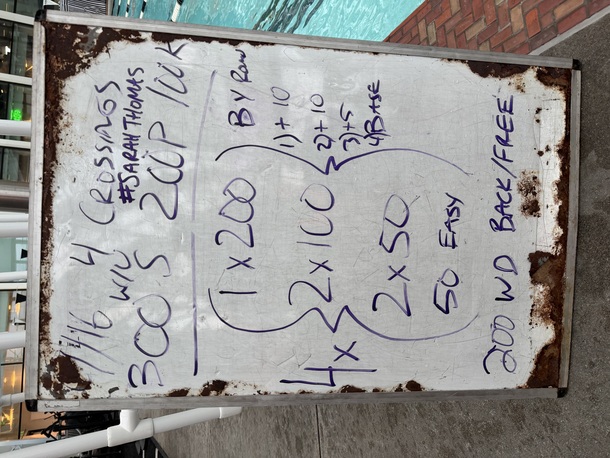 9/16 4 CROSSINGS
W/U #SARAHTHOMAS
300 S 200P 100K
1 x 200 BY
1) + 10
4x 2 x 100 2) + 10
3) + 5
4) BASE
2 x 50
50 EASY
200 WD BACK/FREE